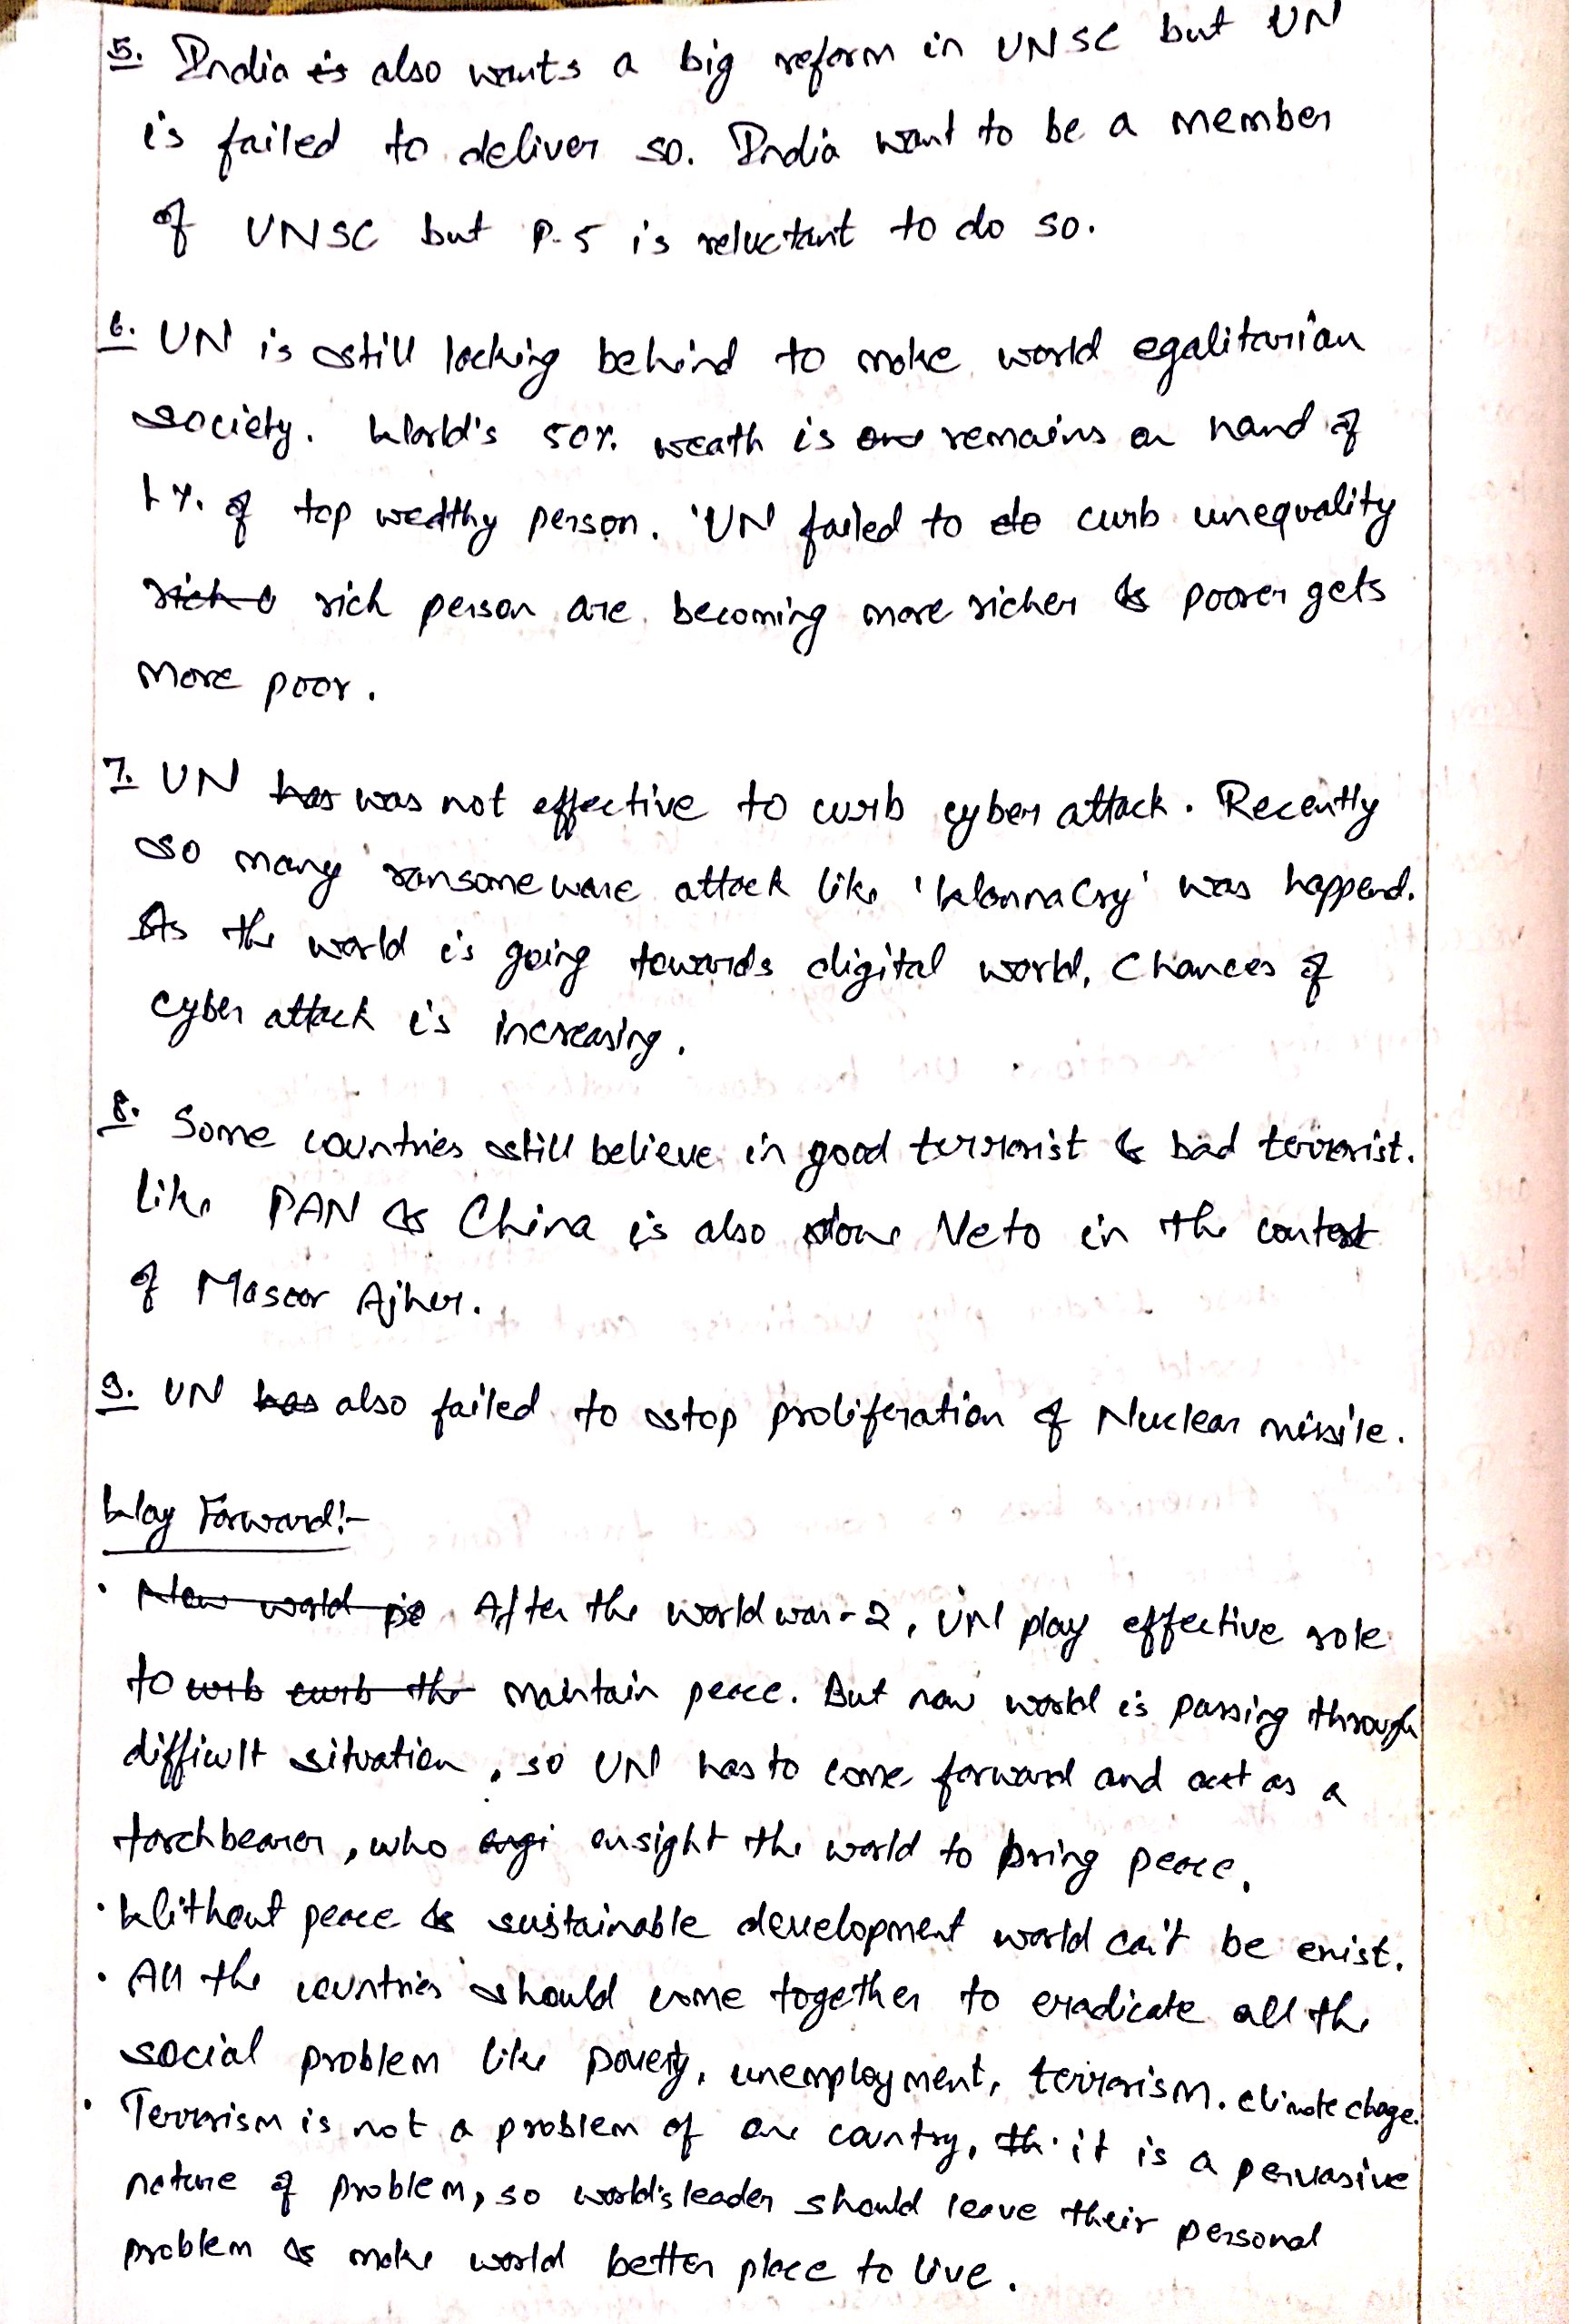 5. India is also wants a big reform in UNSC but UN
is failed to deliver so. India want to be a member
of UNSC but P-5 is reluctant to do so.
6. UN is still lacking behind to make world egalitarian
society. World's 50% weath is one remains on hand of
1%. of top wealthy person. UN failed to do curb unequality
rich rich person are becoming more richer & poorer gets
more poor.
7. UN has was not effective to curb cyber attack. Recently
so many ransomeware attack like 'WannaCry' was happend.
As the world is going towards digital world, Chances of
cyber attack is increasing.
8. Some countries still believe in good terrorist & bad terrorist.
like PAN & China is also done Veto in the context
of Masoor Ajher.
9. UN has also failed to stop proliferation of Nuclear missile.
Way Forward:-
• New world After the world war-2, UN play effective role
to curb curb the maintain peace. But now world is passing through
difficult situation, so UN has to come forward and act as a
torchbearer, who ensight the world to bring peace.
• Without peace & sustainable development world can't be exist.
• All the countries should come together to eradicate all the
social problem like poverty, unemployment, terrorism. climate chage.
• Terrorism is not a problem of one country, th it is a pervasive
nature of problem, so world's leader should leave their personal
problem & make world better place to live.